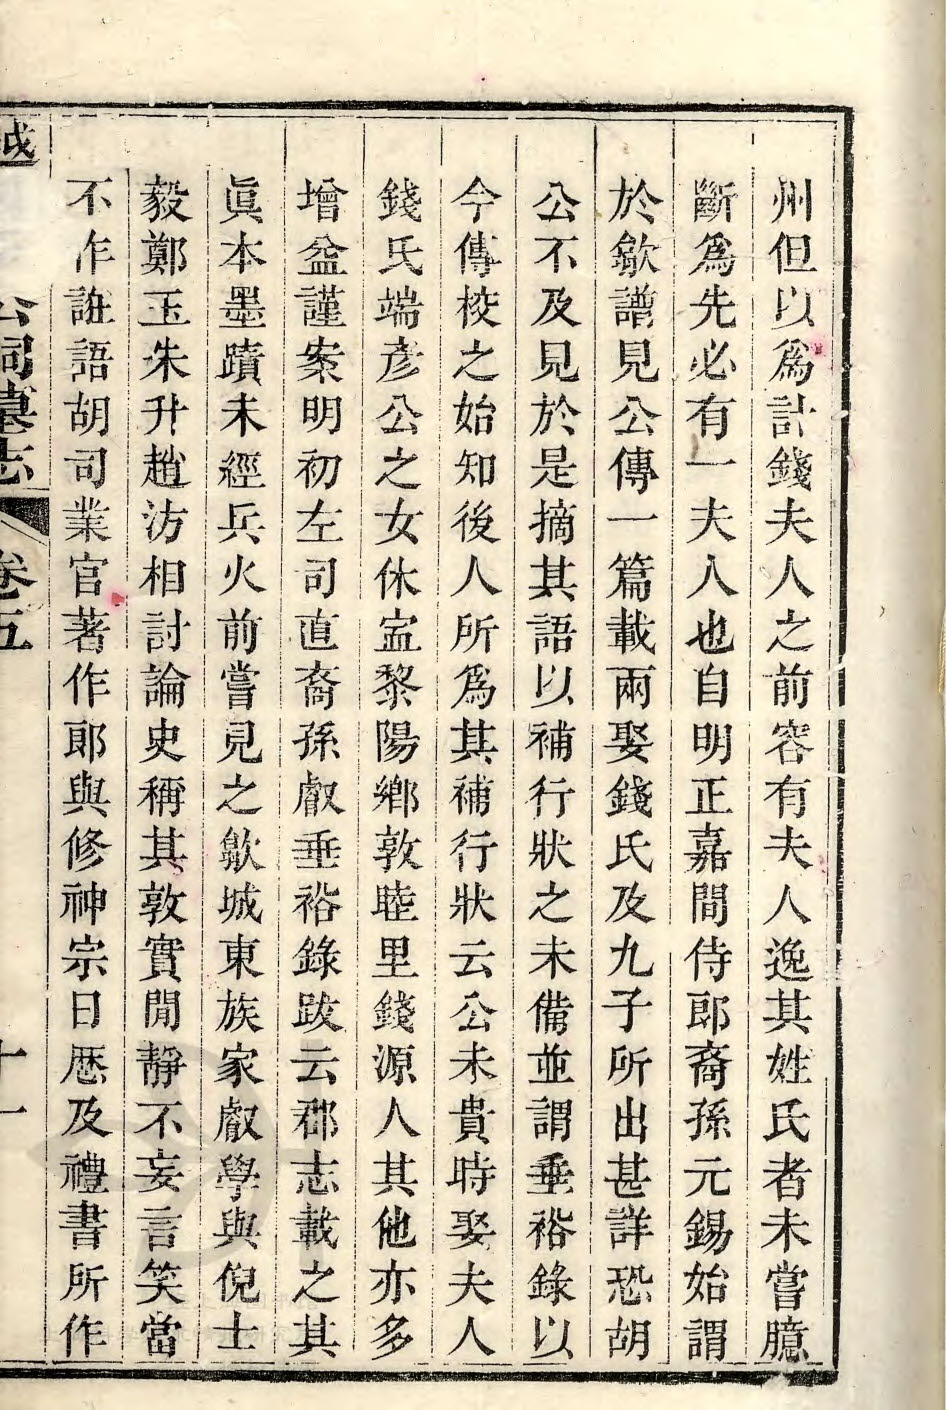 州但以爲計錢夫人之前容有夫人逸其姓氏者未嘗臆
斷爲先必有一夫人也自明正嘉間侍郎裔孫元錫始謂
於歙譜見公傳一篇載兩娶錢氏及九子所出甚詳恐胡
公不及見於是摘其語以補行狀之未備並謂垂裕錄以
今傳校之始知後人所爲其補行狀云公未貴時娶夫人
錢氏端彥公之女休寍黎陽鄉敦睦里錢源人其他亦多
增益謹案明初左司直裔孫叡垂裕錄跋云郡志載之其
眞本墨蹟未經兵火前嘗見之歙城東族家叡學與倪士
毅鄭玉朱升趙汸相討論史稱其敦實閒靜不妄言笑當
不作誑語胡司業官著作郎與修神宗日厯及禮書所作
越
公祠墓志
卷五
十一